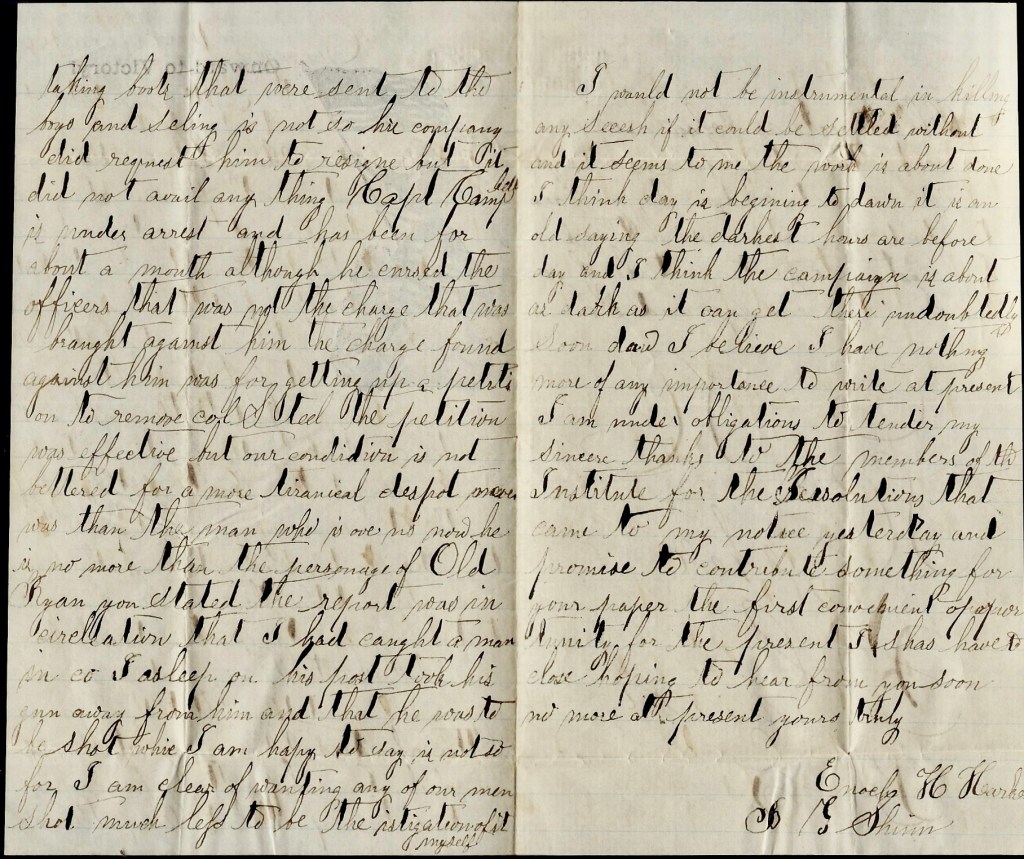 taking boots that were sent to the
boys and seling is not so his company
did request him to resigne but it
did not avail any thing Capt Camp
bell
is under arrest and has been for
about a month although he cursed the
officers that was not the charge that was
braught against him the charge found
against him was for getting up a petiti
on to remove col Steel the petition
was effective but our condidion is not
bettered for a more tiranical despot never
was than the man who is ove us now he
is no more than the personage of Old
Ryan you stated the report was in
circleation that I had caught a man
in co I asleep on his post took his
gun away from him and that he was to
be shot whic I am hapy to say is not so
for I am clear of wanting any of our men
shot much less to be the istigation of it
myself
I would not be instrumental in killing
any secesh if it could be settled without
and it seems to me the work is about done
I think day is begining to dawn it is an
old saying the darkest hours are before
day and I think the campaign is about
as dark as it can get undoubtedly
soon I believe I have nothing
more of any importance to write at present
I am under obligations to tender my
sincere thanks to the members of th
Institute for the Resolutions that
came to my notice yesterday and
promise to contribute something for
your paper the first convenient opuor
tunity, for the present I shas have to
close hoping to hear from you soon
no more at present yours truly
Enoch H
Shinn
Onward to Victory